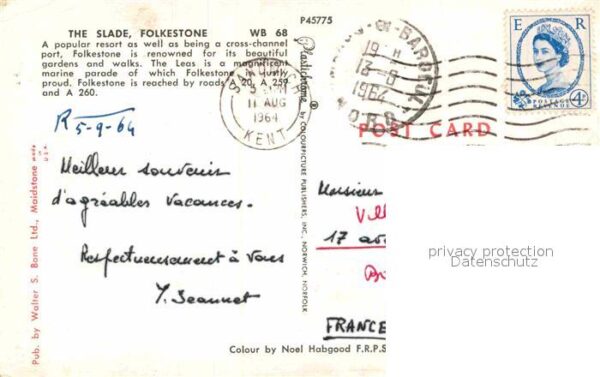 THE SLADE, FOLKESTONE WB 68
A popular resort as well as being a cross-channel
port, Folkestone is renowned for its beautiful
gardens and walks. The Leas is a magnificent
marine parade of which Folkestone is justly
proud. Folkestone is reached by roads A 20, A 259
and A 260.
P45775
Plastichrome ® by COLOURPICTURE PUBLISHERS, INC., NORWICH, NORFOLK
11 AUG
1964
KENT
19 H
13-8
1964
E R
POSTAGE
REVENUE
4D
POST CARD
R 5-9-64
Meilleur souvenir
d'agréables vacances.
Respectueusement à vous
Y. Jeannet
Monsieur
17
FRANCE
privacy protection
Datenschutz
Pub. by Walter S. Bone Ltd., Maidstone made in U.S.A.
Colour by Noel Habgood F.R.P.S